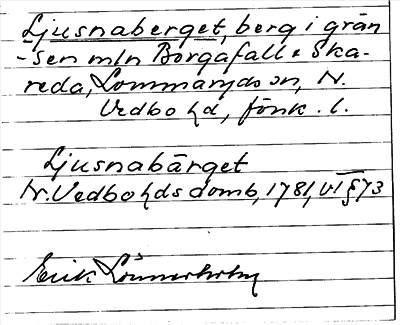 Ljusnaberget, berg i grän
-sen mln Borgafall o Ska-
reda, Lommaryds sn, N.
Vedbo hd, fönk. l.
Ljusnabärget
N. Vedbo hds domb, 1781, VI § 73
Erik